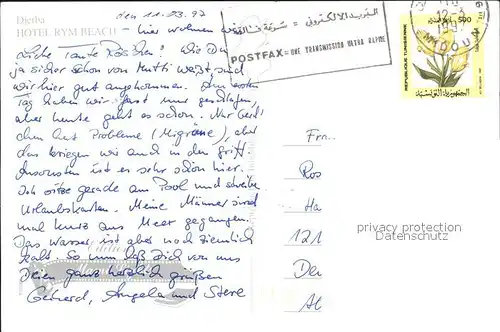 Djerba
HOTEL RYM BEACH
den 11.03.97
hier wohnen wir
Liebe Tante Röschen! Wie Du
ja sicher schon von Mutti weißt, sind
wir hier gut angekommen. Am ersten
Tag haben wir fast nur geschlafen,
aber heute geht es schon. Nur Gerd
chen hat Probleme (Migräne), aber
das kriegen wir auch in den Griff.
Ansonsten ist es sehr schön hier.
Ich sitze gerade am Pool und schreibe
Urlaubskarten. Meine Männer sind
mal kurz ans Meer gegangen.
Das Wasser ist aber noch ziemlich
kalt. So nun laß Dich von uns
Dreien ganz herzlich grüßen
Gerhard, Angela und Steve
البريد الالكتروني = سرعة فائقة
POSTFAX = UNE TRANSMISSION ULTRA RAPIDE
500
REPUBLIQUE TUNISIENNE
الجمهورية التونسية
MIDOUN
Frn.
Ros
Ha
121
Der
Al
privacy protection
Datenschutz